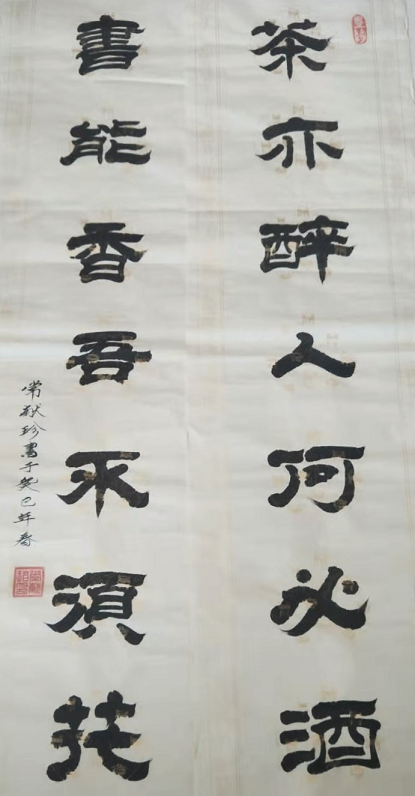 茶亦醉人何必酒
書能香吾不須花
常献珍書于癸巳年春